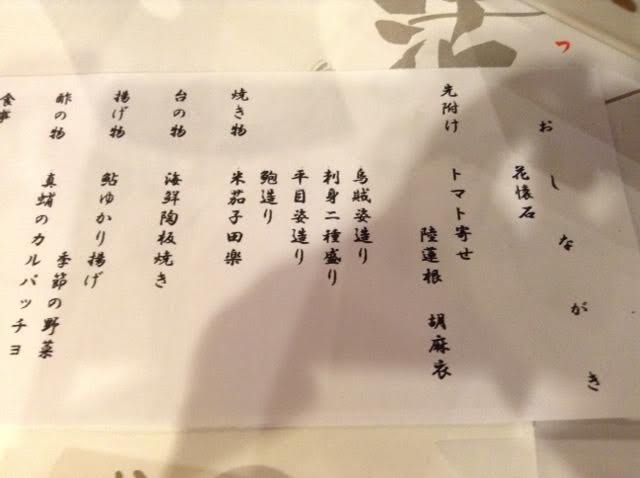 つ
おしながき
花懐石
先附け
トマト寄せ
陸蓮根 胡麻衣
烏賊姿造り
刺身二種盛り
平目姿造り
鮑造り
焼き物
米茄子田楽
台の物
海鮮陶板焼き
揚げ物
鮎ゆかり揚げ
酢の物
季節の野菜
真蛸のカルパッチョ
食事